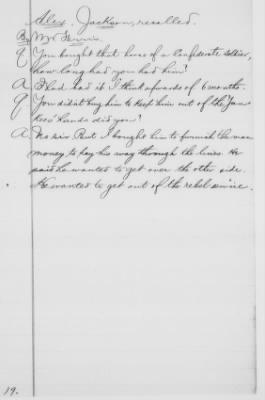 Alex. Jackson, recalled.
By Mr
Q You bought that horse of a Confederate soldier,
how long had you had him?
A I had had it I think upwards of 6 months.
Q You didn't buy him to keep him out of the Yan
kees' hands did you?
A No sir. But I bought him to furnish the man
money to pay his way through the lines. He
said he wanted to get over the other side.
He wanted to get out of the rebel service.
19.